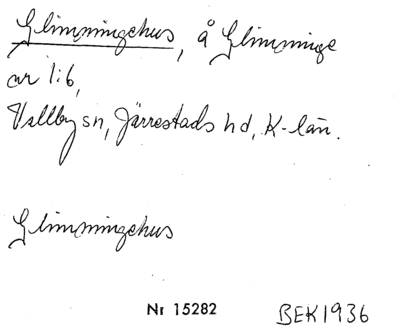 Glimmingehus, å Glimminge
nr 1:6,
Vallby sn, Järrestads hd, K-län.
Glimmingehus
Nr 15282 BEK1936